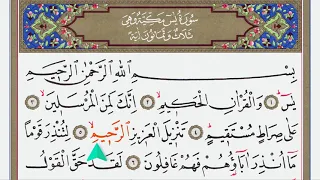 سُورَةُ يٰسٓ مَكِّيَّةٌ وَهِيَ
ثَلَاثٌ وَثَمَانُونَ اٰيَةً
بِسْمِ اللّٰهِ الرَّحْمٰنِ الرَّحِيمِ
يٰسٓ ۝١ وَالْقُرْاٰنِ الْحَكِيمِ ۝٢ اِنَّكَ لَمِنَ الْمُرْسَلِينَ ۝٣
عَلٰى صِرَاطٍ مُسْتَقِيمٍ ۝٤ تَنْزِيلَ الْعَزِيزِ الرَّحِيمِ ۝٥ لِتُنْذِرَ قَوْمًا
مَٓا اُنْذِرَ اٰبَٓاؤُ۬هُمْ فَهُمْ غَافِلُونَ ۝٦ لَقَدْ حَقَّ الْقَوْلُ